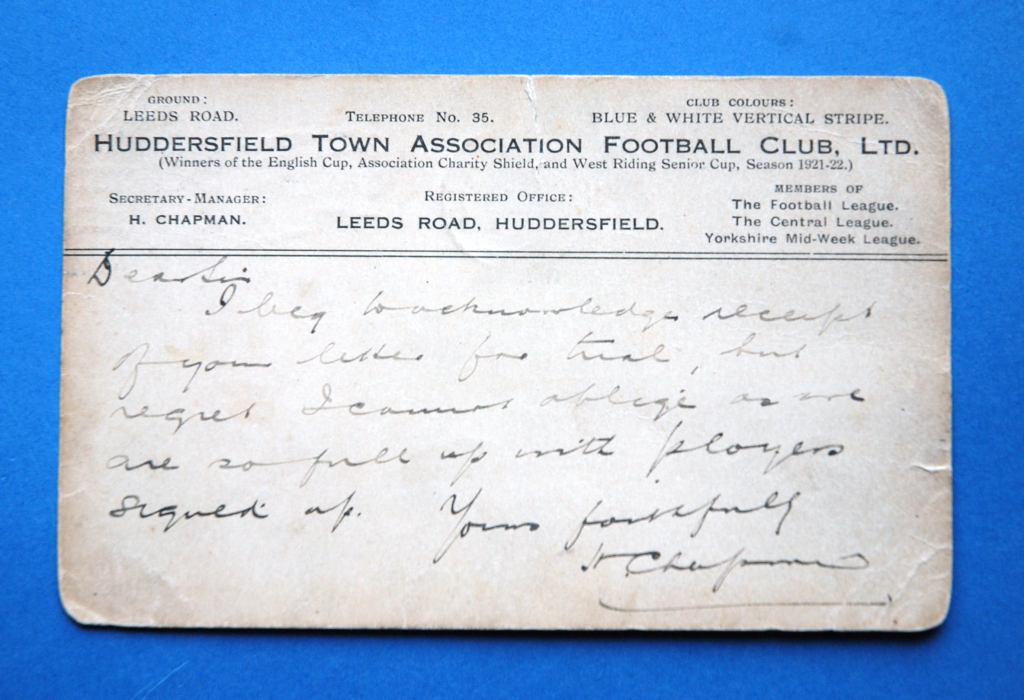 GROUND:
LEEDS ROAD.
TELEPHONE No. 35.
CLUB COLOURS:
BLUE & WHITE VERTICAL STRIPE.
HUDDERSFIELD TOWN ASSOCIATION FOOTBALL CLUB, LTD.
(Winners of the English Cup, Association Charity Shield, and West Riding Senior Cup, Season 1921-22.)
SECRETARY-MANAGER:
H. CHAPMAN.
REGISTERED OFFICE:
LEEDS ROAD, HUDDERSFIELD.
MEMBERS OF
The Football League.
The Central League.
Yorkshire Mid-Week League.
Dear Sir
I beg to acknowledge receipt
of your letter for trial, but
regret I cannot oblige as we
are so full up with players
signed up. Yours faithfully
H Chapman